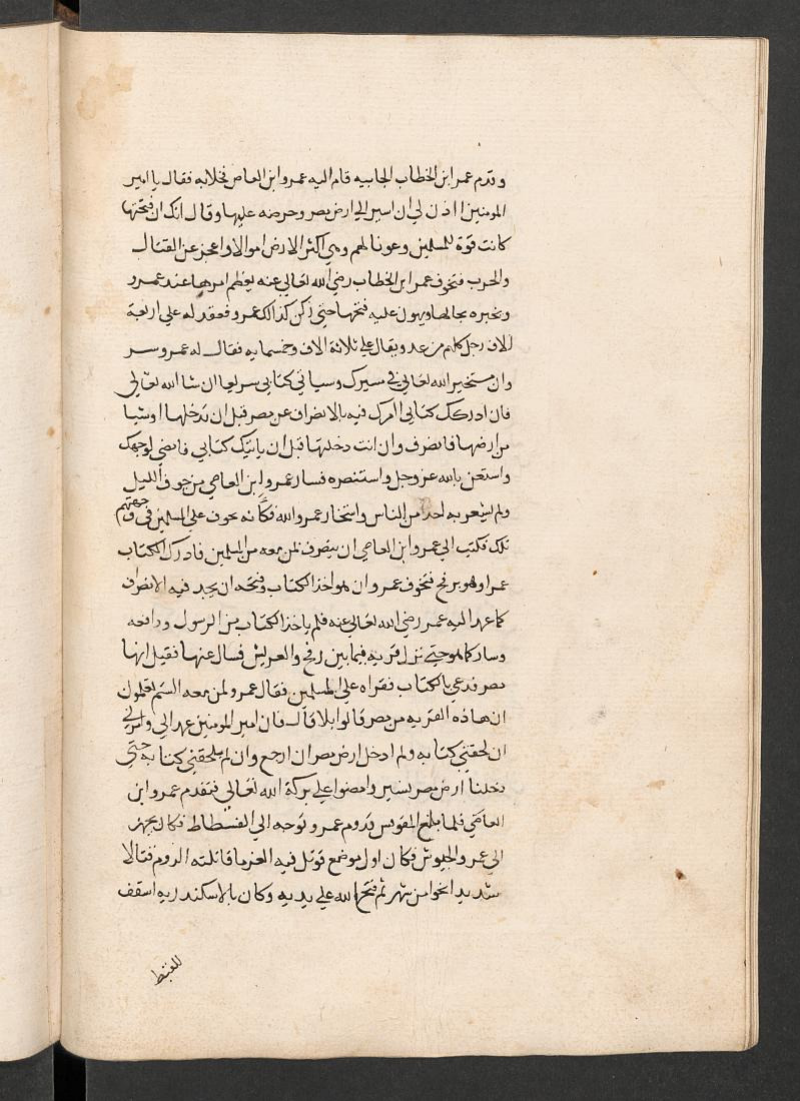 وقدم عمر ابن الخطاب الجابيه قام اليه عمرو ابن العاص فخلا به فقال يا امير
المومنين ااذن لي ان اسير الي ارض مصر وحرضه عليها وقال انك ان فتحتها
كانت قوة للمسلمين وعونا لهم وهي اكثر الارض اموالا واعجز عن القتال
والحرب فتخوف عمر ابن الخطاب رضي الله تعالي عنه يعظم امرها عند عمرو
ويخبره بحالها ويهون عليه فتحها حتي ركن كذالك عمرو فعقد له علي اربعة
الاف رجل كلهم من عد ويقال علي ثلاثة الاف وخمسمايه فقال له عمر وسر
وان مستخير الله تعالي في سيرك وسياتي كتابي سريعا ان شا الله تعالي
فان ادركك كتابي امرك فيه بالانصراف عن مصر قبل ان تدخلها او شيا
من ارضها فانصرف وان انت دخلتها قبل ان ياتيك كتابي فامضي لوجهك
واستعن بالله عز وجل واستنصره فسار عمرو ابن العاصي من جوف الليل
ولم يشعر به احد من الناس واستخار عمر والله فكانه تخوف علي المسلمين في وجهتهم
تلك فكتب الي عمرو ابن العاصي ان ينصرف بمن معه من المسلمين فادرك الكتاب
عمرا وهو برفح فتخوف عمرو ان هو اخذ الكتاب وفتحه ان يجد فيه الانصراف
كما عهد اليه عمر رضي الله تعالي عنه فلم ياخذ الكتاب من الرسول ودافعه
وسار كما هو حتي نزل قريه فيما بين رفح والعريش فسال عنها فقيل انها
مصر فدعي بالكتاب فقراه علي المسلمين فقال عمرو لمن معه الستم تعلمون
ان هاذه القريه من مصر قالوا بلا قال فان امير المومنين عهد الي وامرني
ان لحقني كتابه ولم ادخل ارض مصر ان ارجع وان لم يلحقني كتابه حتي
دخلنا ارض مصر نسير وامضوا علي بركة الله تعالي فتقدم عمرو ابن
العاصي فلما بلغ المقوقس قدوم عمرو توجه الي الفسطاط فكان يجهز
الي عمر والجيوش فكان اول موضع قوتل فيه الفرما قاتلته الروم قتالا
شديدا نحوا من شهر ثم فتح الله علي يديه وكان بالاسكندريه اسقف
للقبط